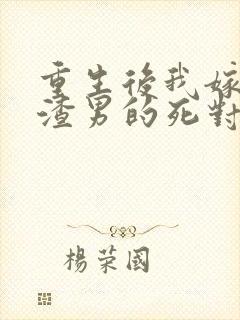 重生後我嫁
渣男的死對
楊荣國